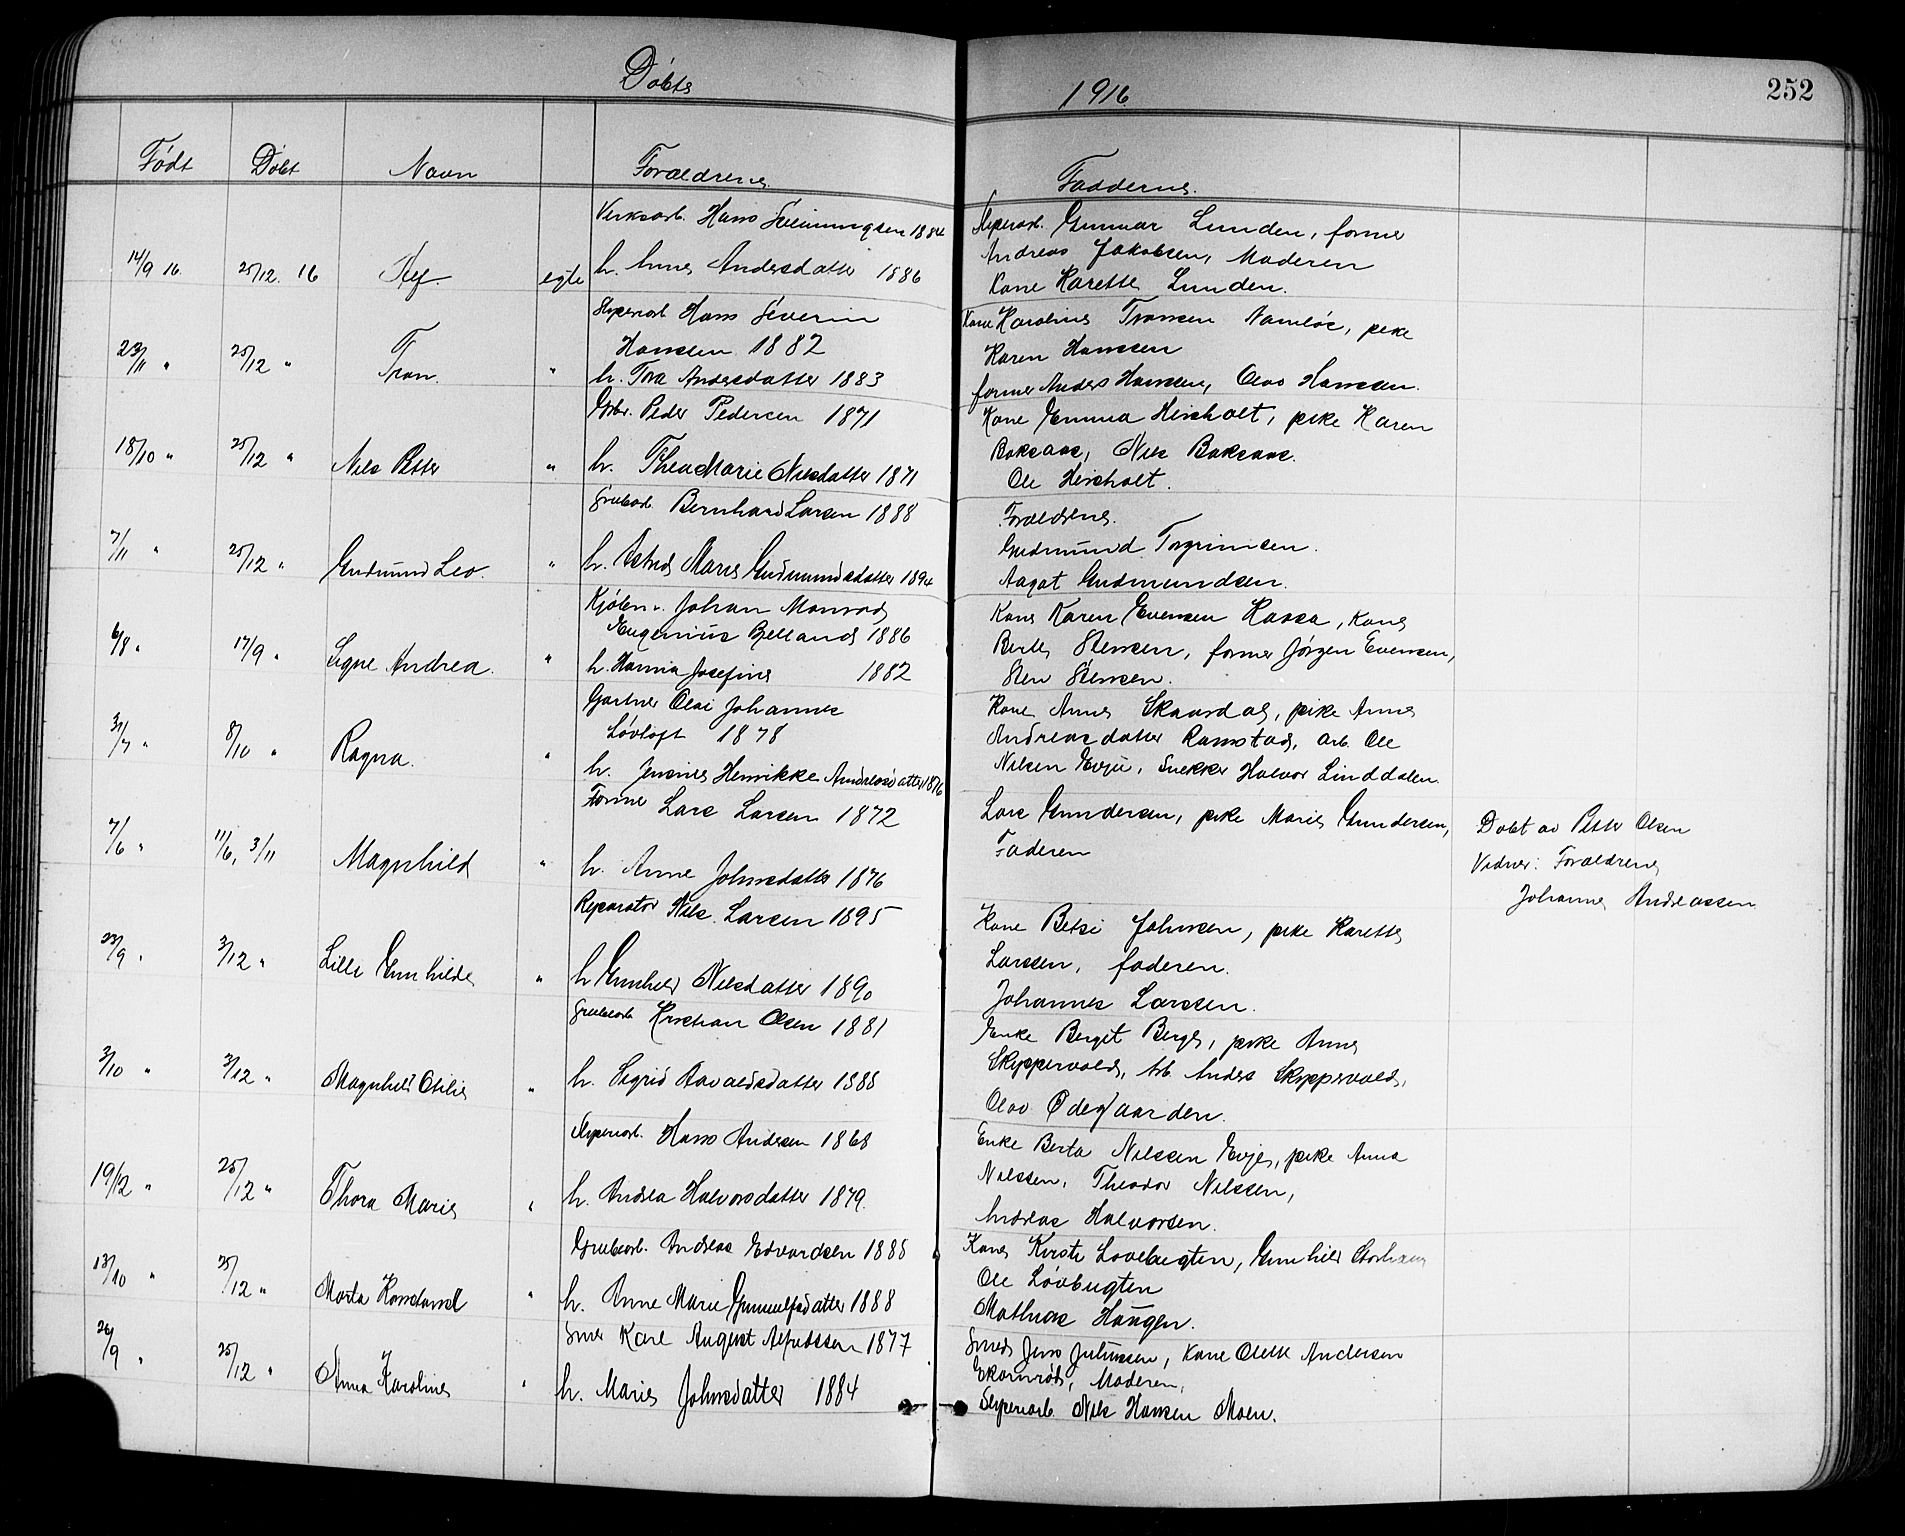 Döbte
1916
252
Født Döbt Navn Forældrene Fadderne.
Verksarb. Hans 1884
14/9 16. 25/12. 16 Alf. egte h. Anne Andersdatter 1886
Gunnar Lunden, former
Andreas Jakobsen, Moderen
Kone Karette Lunden.
Hans Severin
Hanssen 1882
23/11 " 25/12 " Tran. " h. Tora Andersdatter 1883
Kone Karoline Transen Namløs, pike
Karen Hanssen
former Anders Hanssen, Olav Hanssen.
Peder Pedersen 1871
18/10 " 25/12 " Nils Petter " h. Thea Marie Nilsdatter 1871
Kone Emma Hirsholt, pike Karen
Baksaas, Nils Baksaas.
Ole Hirsholt.
Grubearb. Bernhard Larsen 1888
7/11 " 25/12 " Gudmund Leo. " h. Astrid Marie Gudmundsdatter 1894
Forældrene.
Gudmund Torgrimsen.
Aagot Gudmundsen.
Johan Monrad
Eugenius Bjelland 1886
6/8 " 17/9 " Signe Andrea. " h. Hanna Josefine 1882
Kone Karen Evensen Hassa, Kone
Berthe Stensen, former Jörgen Evensen,
Sten Stensen.
Gartner Olai Johannes
Løvtoft 1878
31/7 " 8/10 " Ragna. " h. Jensine Henrikke Andreasdatter 1876
Kone Anne Skaardal, pike Anne
Andreasdatter Ramstad, arb. Ole
Nilsen Evju, Snekker Halvor Linddalen.
Former Lars Larsen 1872
7/6 " 11/6, 3/11 Magnhild " h. Anne Johnsdatter 1876
Lars Gundersen, pike Marie Gundersen,
Faderen
Döbt av Petter Olsen
Vidner: Forældrene,
Johanne Andreassen
Reparatør Nils Larsen 1895
23/9 " 3/12 " Lilli Gunhilde " h Gunhild Nilsdatter 1890
Kone Betsi Johnsen, pike Karette
Larsen, faderen.
Johannes Larsen.
Grubearb. Kristian Olsen 1881
3/10 " 3/12 " Magnhild Otilie " h. Sigrid Aavaldsdatter 1888
Enke Berget Berge, pike Anne
Skyppervold, Arb. Anders Skyppervold,
Olav Ødegaarden.
Hans Andersen 1868
19/12 " 25/12 " Thora Marie " h. Andrea Halvorsdatter 1879.
Enke Berta Nilssen Evje, pike Anna
Nilssen, Theodor Nilssen,
Andreas Halvorsen.
Grubearb. Andreas Edvardsen 1885
13/10 " 25/12 " Marta Konstanse " h. Anne Marie Gunnulfsdatter 1888
Kone Kirsti Løvbugten, Gunhild
Ole Løvbugten
Mathias Haugen.
Smed Karl August Alfredssen 1877
26/9 " 25/12 " Anna Karoline " h. Marie Johnsdatter 1884
Smed Jens Juliussen, Kone Olette Andersen
Ekornrød, Moderen,
Sliperiarb. Nils Hansen Moen.